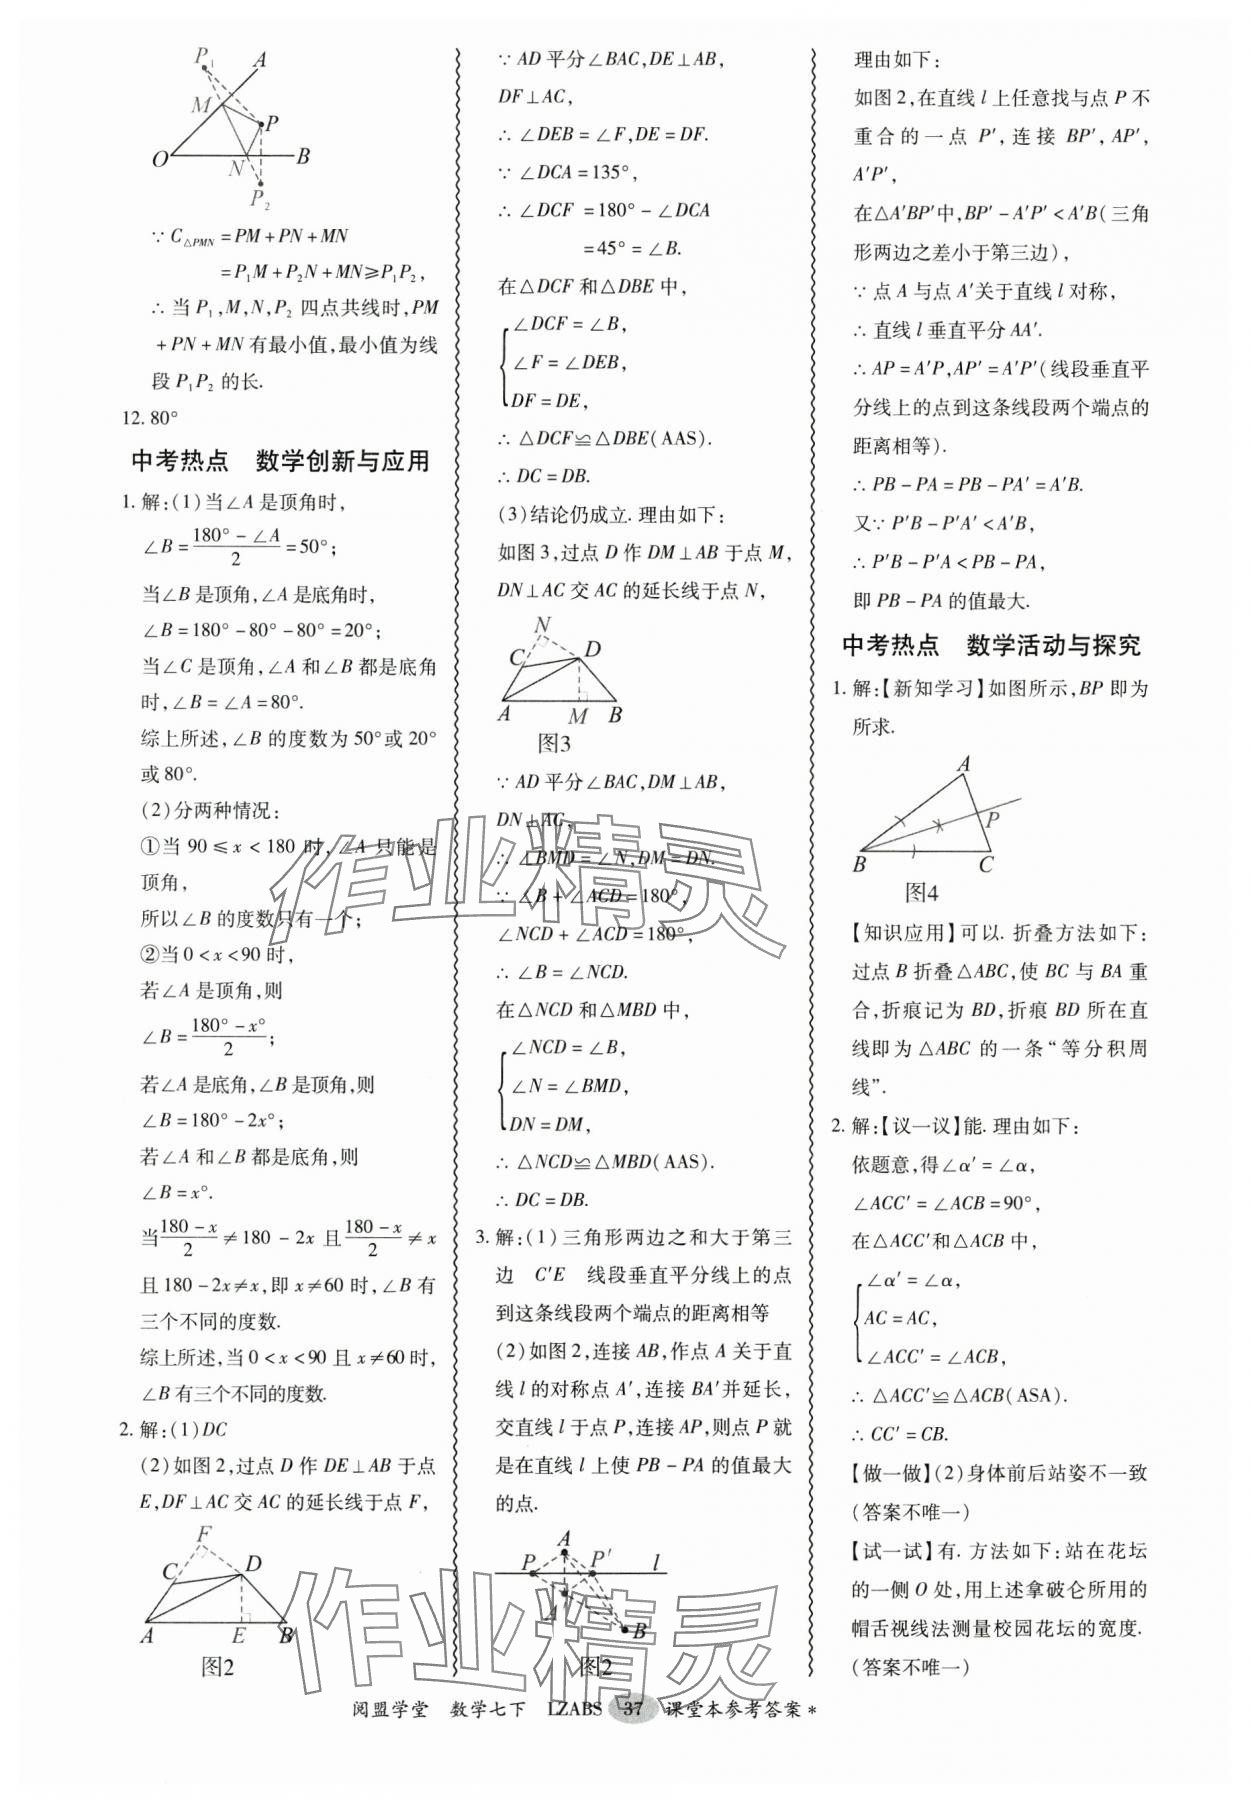 P₁
A
M
P
O
N
B
P₂
∵ C△PMN = PM + PN + MN
= P₁M + P₂N + MN ≥ P₁P₂,
∴ 当 P₁,M,N,P₂ 四点共线时,PM
+ PN + MN 有最小值,最小值为线
段 P₁P₂ 的长.
12. 80°
中考热点 数学创新与应用
1. 解:(1)当∠A 是顶角时,
∠B = (180° - ∠A)/2 = 50°;
当∠B 是顶角,∠A 是底角时,
∠B = 180° - 80° - 80° = 20°;
当∠C 是顶角,∠A 和∠B 都是底角
时,∠B = ∠A = 80°.
综上所述,∠B 的度数为 50°或 20°
或 80°.
(2)分两种情况:
①当 90 ≤ x < 180 时,∠A 只能是
顶角,
所以∠B 的度数只有一个;
②当 0 < x < 90 时,
若∠A 是顶角,则
∠B = (180° - x°)/2;
若∠A 是底角,∠B 是顶角,则
∠B = 180° - 2x°;
若∠A 和∠B 都是底角,则
∠B = x°.
当(180 - x)/2 ≠ 180 - 2x 且(180 - x)/2 ≠ x
且 180 - 2x ≠ x,即 x ≠ 60 时,∠B 有
三个不同的度数.
综上所述,当 0 < x < 90 且 x ≠ 60 时,
∠B 有三个不同的度数.
2. 解:(1)DC
(2)如图 2,过点 D 作 DE⊥AB 于点
E,DF⊥AC 交 AC 的延长线于点 F,
F
C
D
A
E
B
图2
∵ AD 平分∠BAC,DE⊥AB,
DF⊥AC,
∴ ∠DEB = ∠F,DE = DF.
∵ ∠DCA = 135°,
∴ ∠DCF = 180° - ∠DCA
= 45° = ∠B.
在△DCF 和△DBE 中,
∠DCF = ∠B,
∠F = ∠DEB,
DF = DE,
∴ △DCF≌△DBE(AAS).
∴ DC = DB.
(3)结论仍成立. 理由如下:
如图 3,过点 D 作 DM⊥AB 于点 M,
DN⊥AC 交 AC 的延长线于点 N,
N
C
D
A
M
B
图3
∵ AD 平分∠BAC,DM⊥AB,
DN⊥AC,
∴ ∠BMD = ∠N,DM = DN.
∵ ∠B + ∠ACD = 180°,
∠NCD + ∠ACD = 180°,
∴ ∠B = ∠NCD.
在△NCD 和△MBD 中,
∠NCD = ∠B,
∠N = ∠BMD,
DN = DM,
∴ △NCD≌△MBD(AAS).
∴ DC = DB.
3. 解:(1)三角形两边之和大于第三
边 C′E 线段垂直平分线上的点
到这条线段两个端点的距离相等
(2)如图 2,连接 AB,作点 A 关于直
线 l 的对称点 A′,连接 BA′并延长,
交直线 l 于点 P,连接 AP,则点 P 就
是在直线 l 上使 PB - PA 的值最大
的点.
A
P
P′
l
A′
B
图2
理由如下:
如图 2,在直线 l 上任意找与点 P 不
重合的一点 P′,连接 BP′,AP′,
A′P′,
在△A′BP′中,BP′ - A′P′ < A′B(三角
形两边之差小于第三边),
∵ 点 A 与点 A′关于直线 l 对称,
∴ 直线 l 垂直平分 AA′.
∴ AP = A′P,AP′ = A′P′(线段垂直平
分线上的点到这条线段两个端点的
距离相等).
∴ PB - PA = PB - PA′ = A′B.
又∵ P′B - P′A′ < A′B,
∴ P′B - P′A < PB - PA,
即 PB - PA 的值最大.
中考热点 数学活动与探究
1. 解:【新知学习】如图所示,BP 即为
所求.
A
P
B
C
图4
【知识应用】可以. 折叠方法如下:
过点 B 折叠△ABC,使 BC 与 BA 重
合,折痕记为 BD,折痕 BD 所在直
线即为△ABC 的一条“等分积周
线”.
2. 解:【议一议】能. 理由如下:
依题意,得∠α′ = ∠α,
∠ACC′ = ∠ACB = 90°,
在△ACC′和△ACB 中,
∠α′ = ∠α,
AC = AC,
∠ACC′ = ∠ACB,
∴ △ACC′≌△ACB(ASA).
∴ CC′ = CB.
【做一做】(2)身体前后站姿不一致
(答案不唯一)
【试一试】有. 方法如下:站在花坛
的一侧 O 处,用上述拿破仑所用的
帽舌视线法测量校园花坛的宽度.
(答案不唯一)
作业精灵
作业精灵
阅盟学堂 数学七下 LZABS 37 课堂本参考答案 *